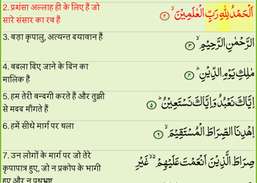 2. प्रशंसा अल्लाह ही के लिए हैं जो
सारे संसार का रब हैं
اَلْحَمْدُ لِلّٰهِ رَبِّ الْعٰلَمِیْنَۙ ﴿۲﴾
3. बड़ा कृपालु, अत्यन्त दयावान हैं
الرَّحْمٰنِ الرَّحِیْمِۙ ﴿۳﴾
4. बदला दिए जाने के दिन का
मालिक हैं
مٰلِكِ یَوْمِ الدِّیْنِؕ ﴿۴﴾
5. हम तेरी बन्दगी करते हैं और तुझी
से मदद माँगते हैं
اِیَّاكَ نَعْبُدُ وَ اِیَّاكَ نَسْتَعِیْنُؕ ﴿۵﴾
6. हमें सीधे मार्ग पर चला
اِهْدِنَا الصِّرَاطَ الْمُسْتَقِیْمَۙ ﴿۶﴾
7. उन लोगों के मार्ग पर जो तेरे
कृपापात्र हुए, जो न प्रकोप के भागी
हुए और न पथभ्रष्ट
صِرَاطَ الَّذِیْنَ اَنْعَمْتَ عَلَیْهِمْ ۙ۬ غَیْرِ